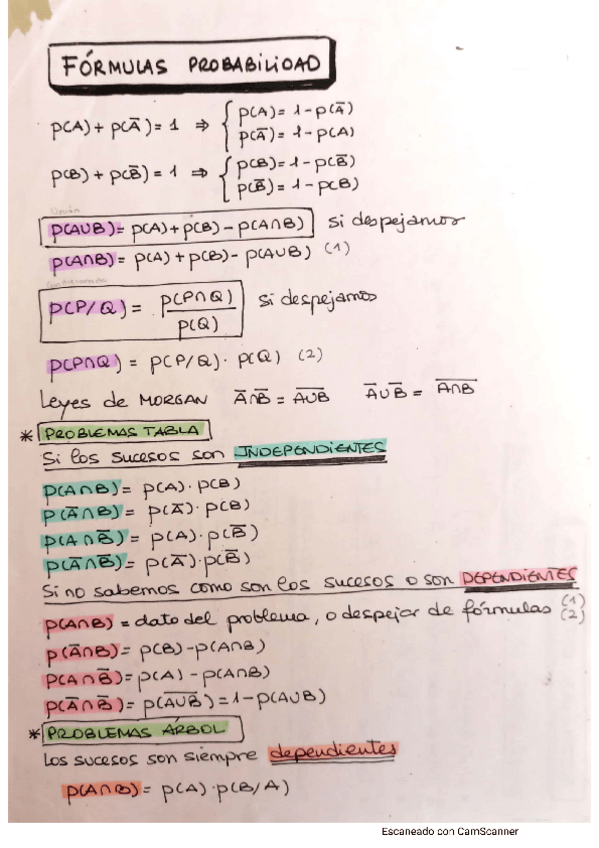 FÓRMULAS PROBABILIDAD
p(A) + p(A̅) = 1 ⇒ { p(A) = 1 - p(A̅)
p(A̅) = 1 - p(A)
p(B) + p(B̅) = 1 ⇒ { p(B) = 1 - p(B̅)
p(B̅) = 1 - p(B)
Unión
p(A∪B) = p(A) + p(B) - p(A∩B) si despejamos
p(A∩B) = p(A) + p(B) - p(A∪B) (1)
p(P/Q) = p(P∩Q) / p(Q) si despejamos
p(P∩Q) = p(P/Q) · p(Q) (2)
Leyes de MORGAN A̅∩B̅ = A̅∪̅B̅ A̅∪B̅ = A̅∩̅B̅
* PROBLEMAS TABLA
Si los sucesos son INDEPENDIENTES
p(A∩B) = p(A) · p(B)
p(A̅∩B) = p(A̅) · p(B)
p(A∩B̅) = p(A) · p(B̅)
p(A̅∩B̅) = p(A̅) · p(B̅)
Si no sabemos como son los sucesos o son DEPENDIENTES
p(A∩B) = dato del problema, o despejar de fórmulas (1) (2)
p(A̅∩B) = p(B) - p(A∩B)
p(A∩B̅) = p(A) - p(A∩B)
p(A̅∩B̅) = p(A̅∪̅B̅) = 1 - p(A∪B)
* PROBLEMAS ÁRBOL
Los sucesos son siempre dependientes
p(A∩B) = p(A) · p(B/A)
Escaneado con CamScanner